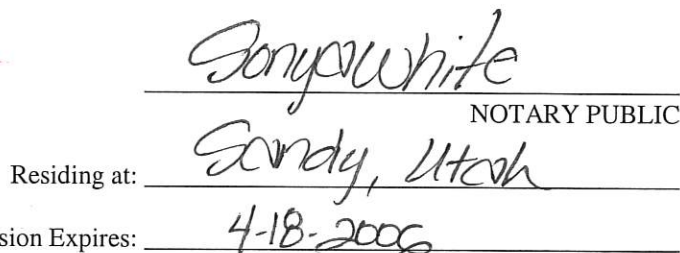 Sonya White
NOTARY PUBLIC
Residing at: Sandy, Utah
sion Expires: 4-18-2006